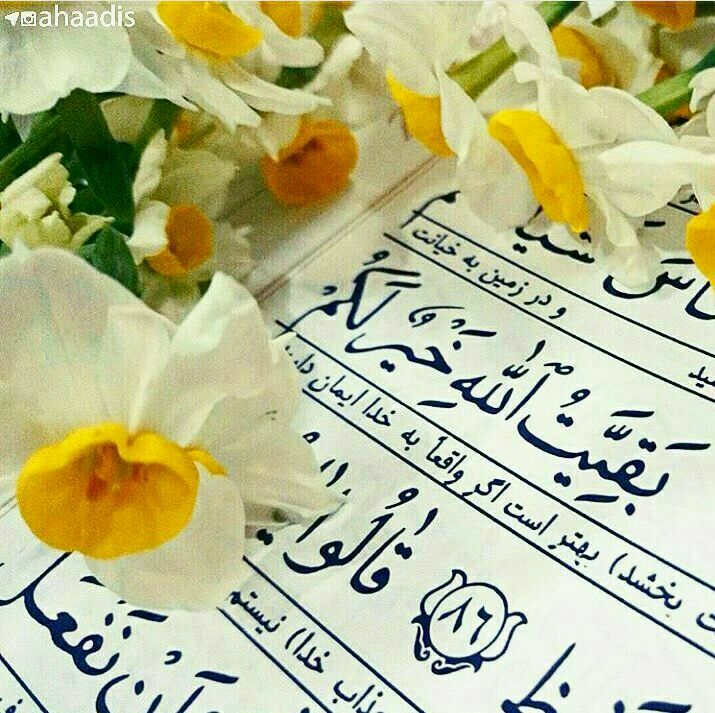 ahaadis
و در زمین به خیانت
بَقِيَّتُ اللَّهِ خَيْرٌ لَكُمْ
بخشد) بهتر است اگر واقعاً به خدا ایمان
قَالُوا
۸۶
خدا) نیستم
نَفْعَلَ